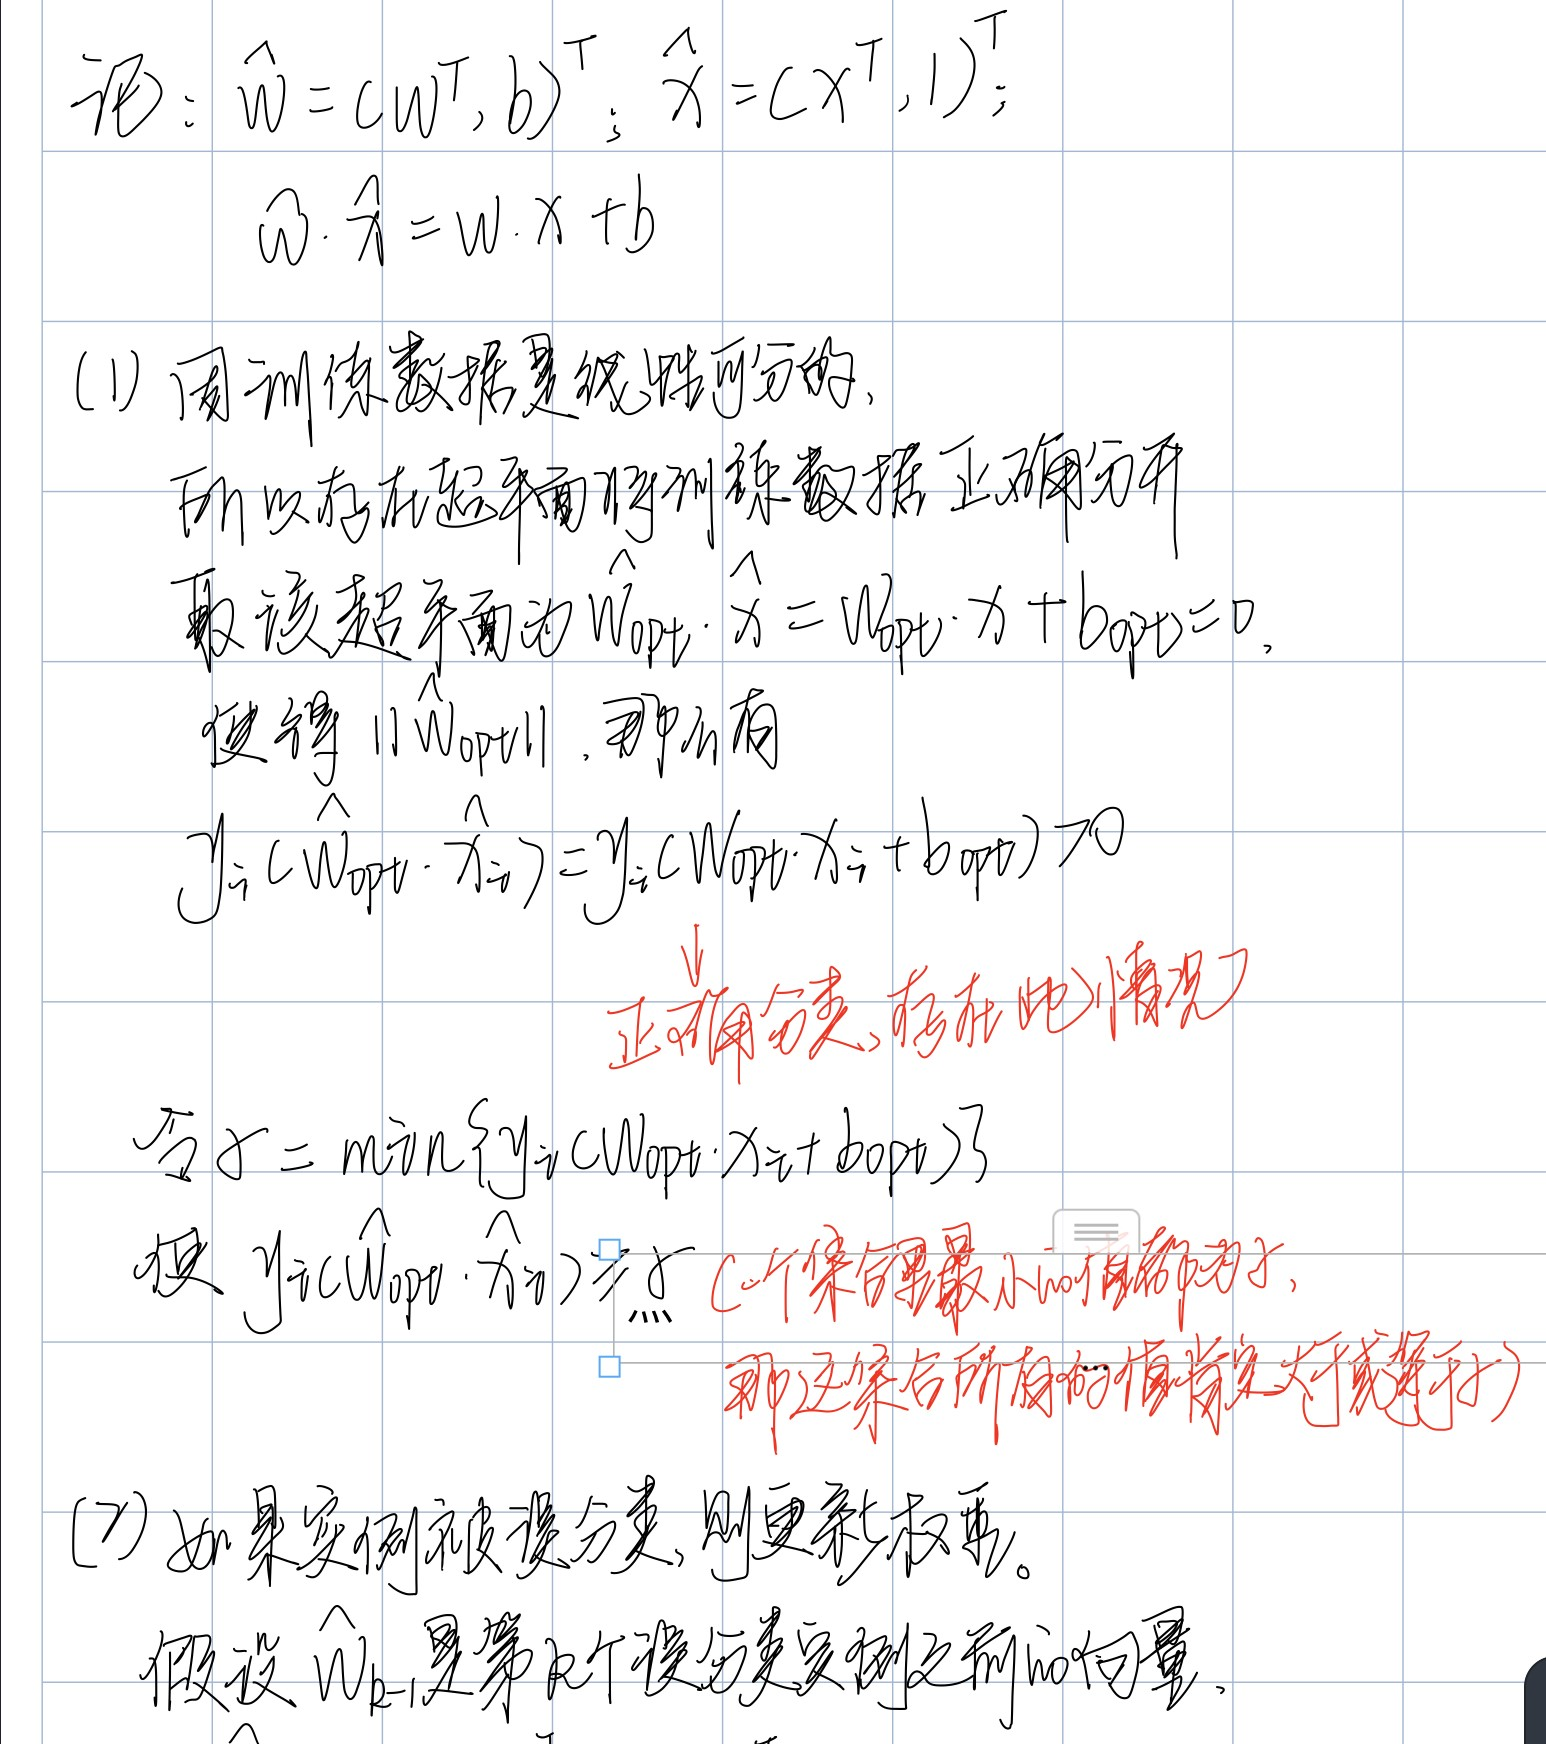 记: ŵ=(wᵀ,b)ᵀ; x̂=(xᵀ,1)ᵀ;
ŵ·x̂=w·x+b
(1) 因训练数据是线性可分的,
所以存在超平面将训练数据正确分开
取该超平面为ŵopt·x̂=wopt·x+bopt=0,
使得||ŵopt||,那么有
yi(ŵopt·x̂i)=yi(wopt·xi+bopt)>0
↓
正确分类,存在此情况
令γ=min{yi(wopt·xi+bopt)}
使 yi(ŵopt·x̂i)≥γ (一个集合里最小的值都为γ,
那这集合所有的值肯定大于或等于γ)
(2) 如果实例被误分类,则更新权重。
假设ŵk-1是第k个误分类实例之前的向量,